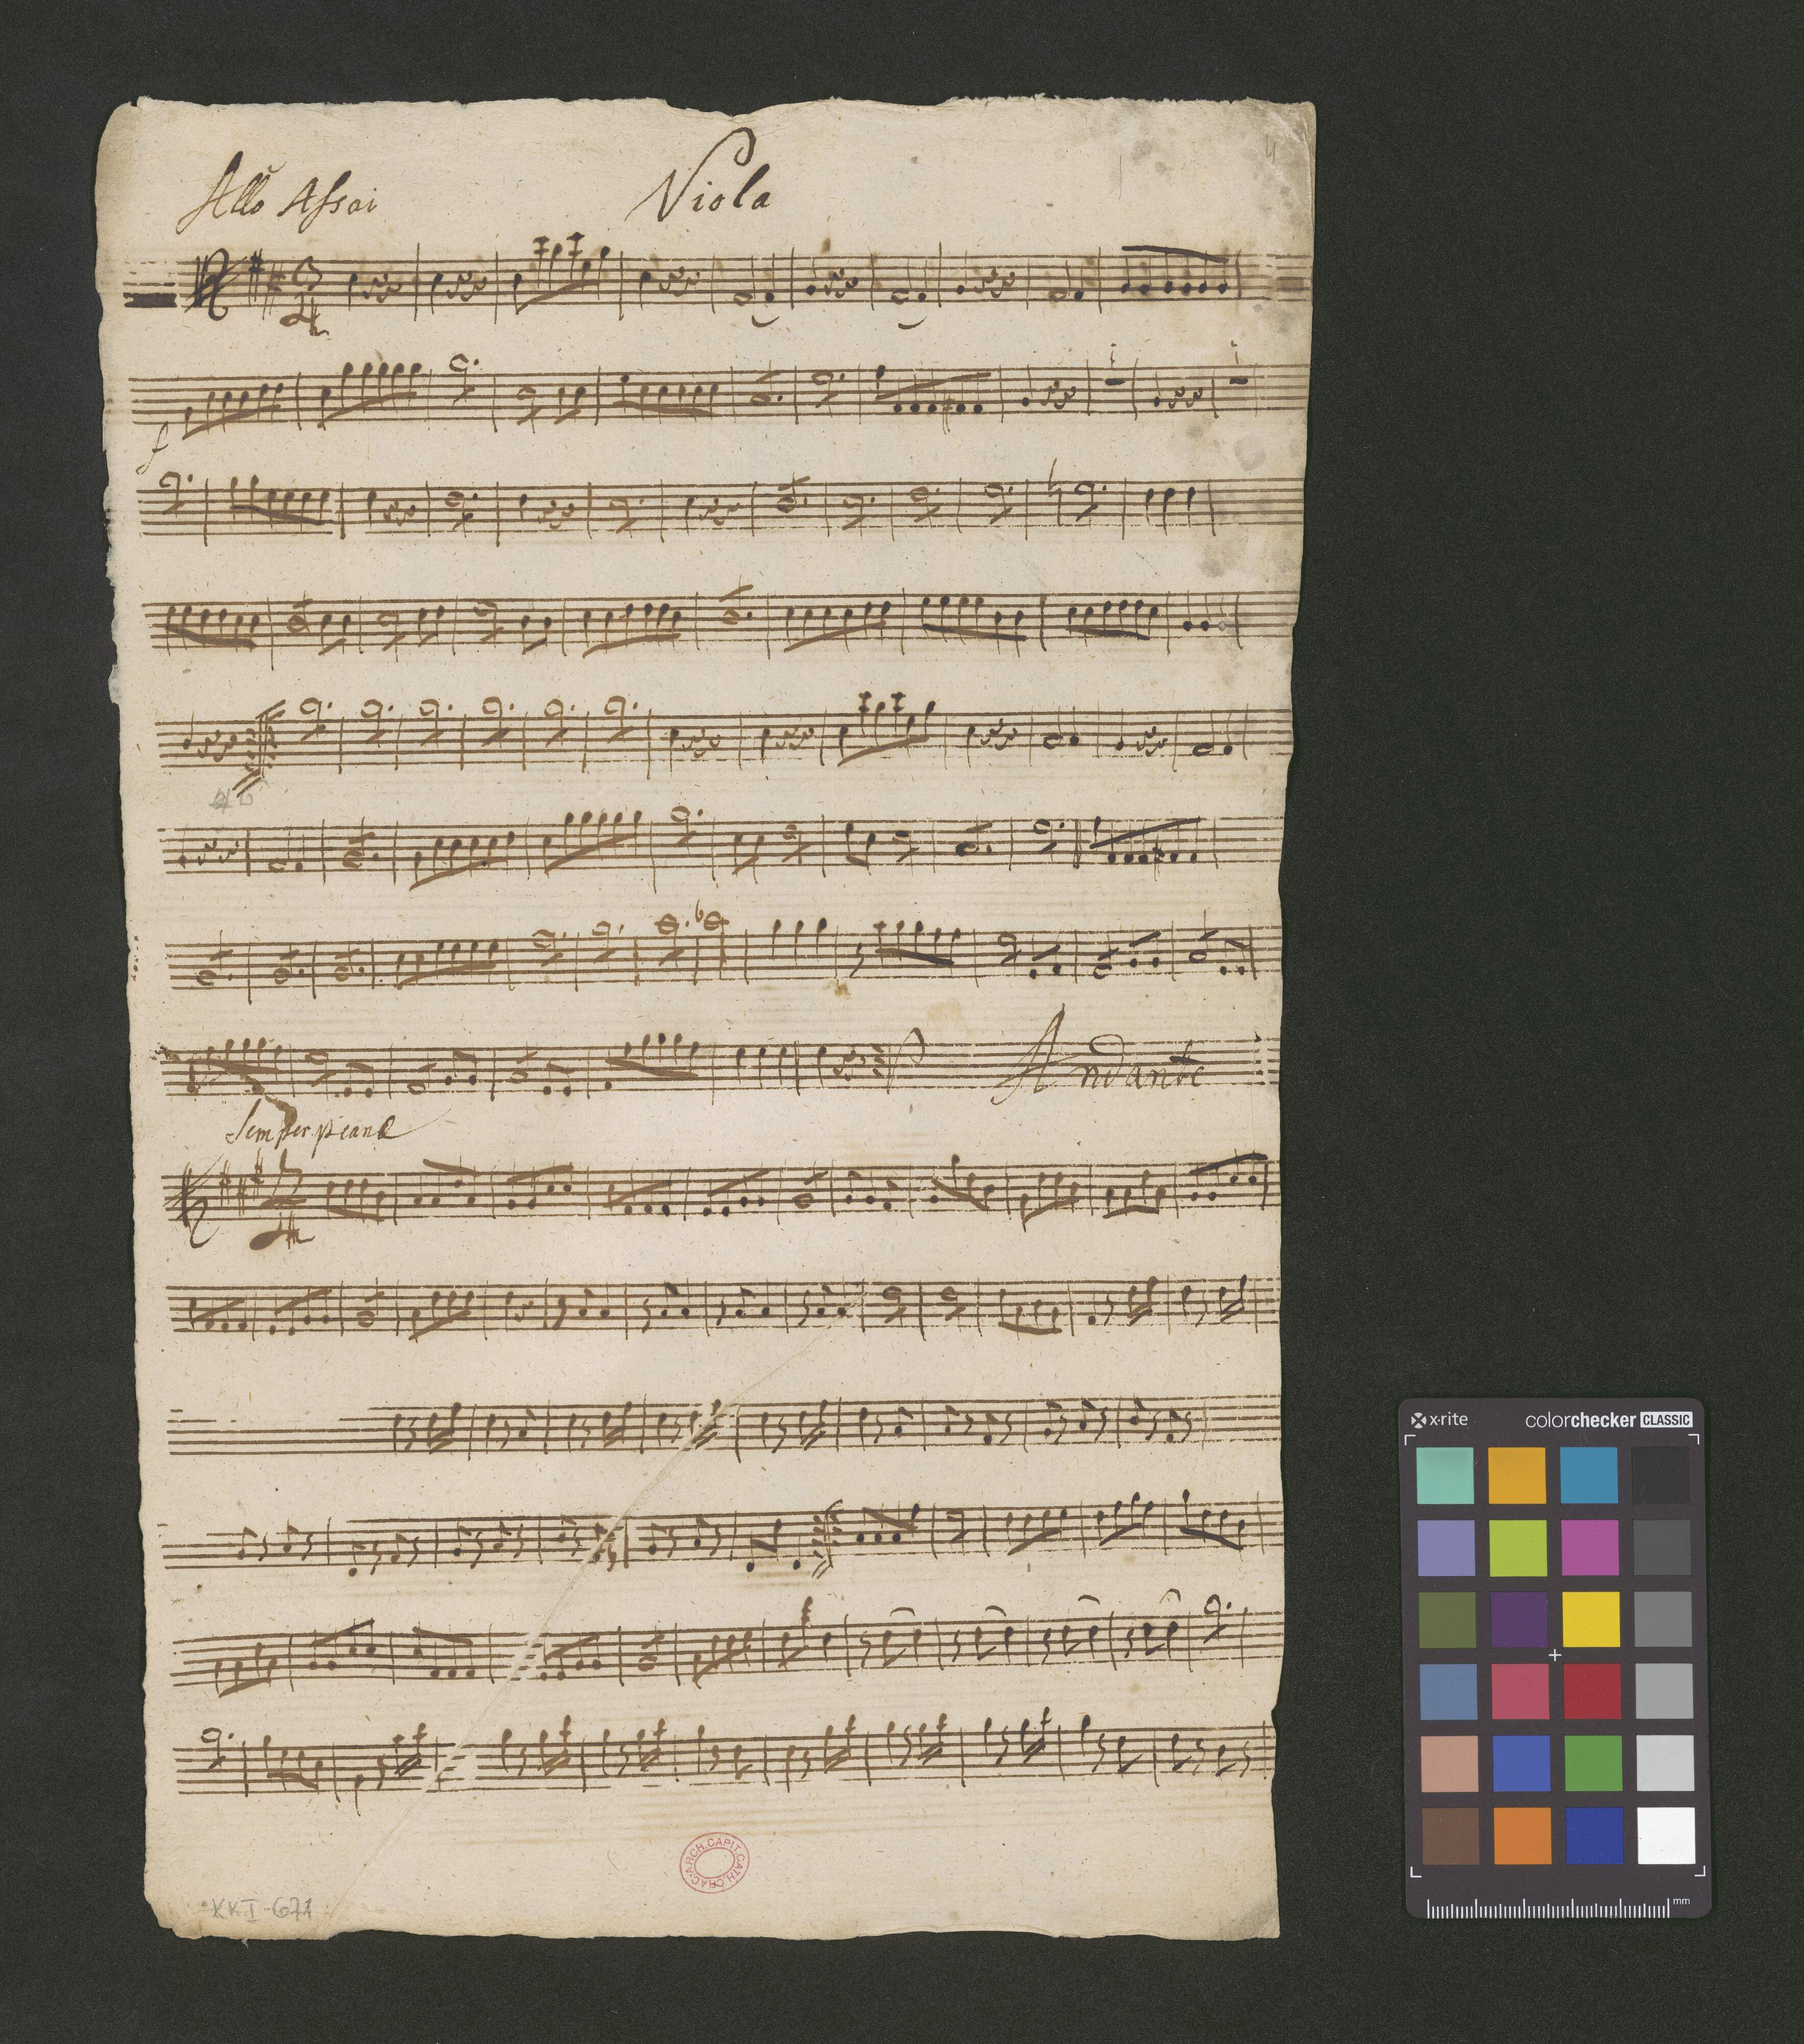 Allo Assai
Viola
4
f
Andante
Semper piano
ARCH. CAPIT. CATH. CRAC.
KKI-671
x-rite
colorchecker CLASSIC
mm